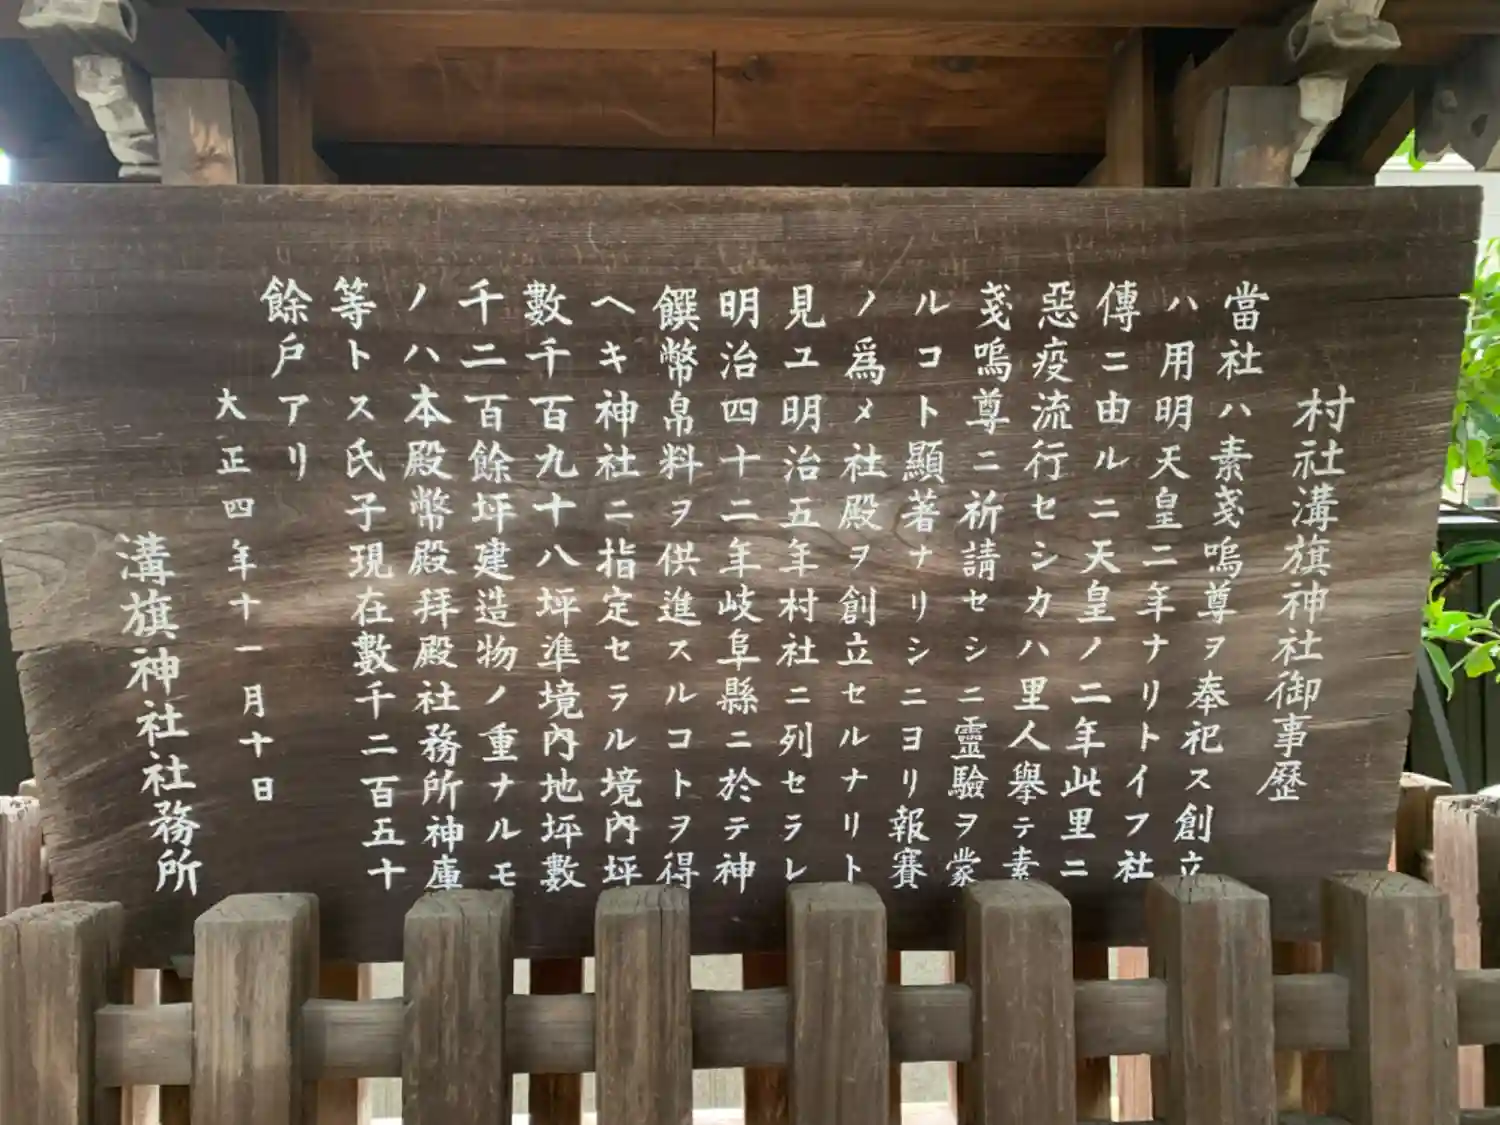 村社溝旗神社御事歷
當社ハ素戔嗚尊ヲ奉祀ス創立
ハ用明天皇二年ナリトイフ社
傳ニ由ル二天皇ノ二年此里ニ
惡疫流行セシカハ里人擧テ素
戔嗚尊ニ祈請セシニ靈驗ヲ蒙
ルコト顯著ナリシニヨリ報賽
ノ爲メ社殿ヲ創立セルナリト
見ユ明治五年村社ニ列セラレ
明治四十二年岐阜縣ニ於テ神
饌幣帛料ヲ供進スルコトヲ得
ヘキ神社ニ指定セラル境內坪
數千百九十八坪準境內地坪數
千二百餘坪建造物ノ重ナルモ
ノハ本殿幣殿拜殿社務所神庫
等トス氏子現在數千二百五十
餘戶アリ
大正四年十一月十日
溝旗神社社務所